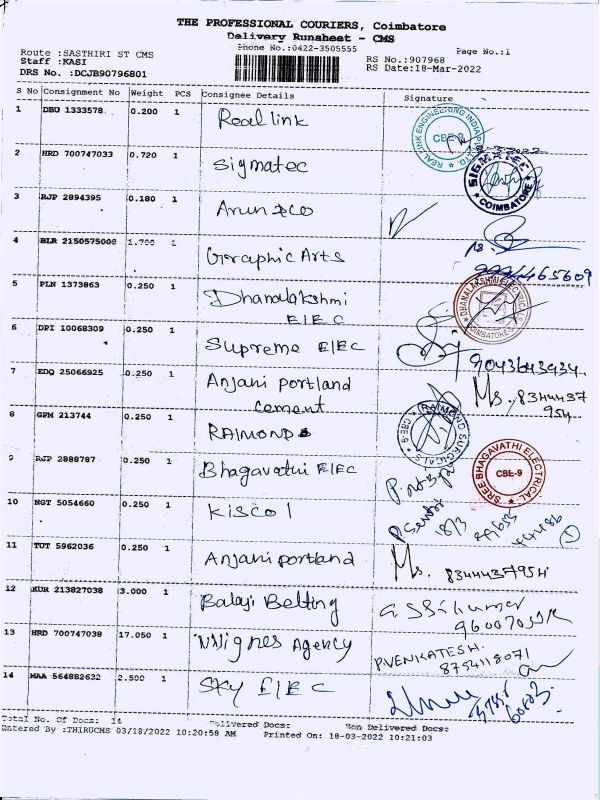 THE PROFESSIONAL COURIERS, Coimbatore
Delivery Runsheet - CMS
Phone No.:0422-3505555
Page No.:1
Route :SASTHIRI ST CMS
Staff :KASI
DRS No. :DCJB90796801
RS No.:907968
RS Date:18-Mar-2022
S No Consignment No Weight PCS Consignee Details Signature
1 DBU 1333578 0.200 1 Real link
REAL LINK ENGINEERING INDIA CBE-9
2 HRD 700747033 0.720 1 Sigmatec
SIGMATEC COIMBATORE
3 RJP 2894395 0.180 1 Arun & co
4 BLR 2150575008 1.700 1 Graphic Arts
465609
5 PLN 1373863 0.250 1 Dhanalakshmi
ELEC
DHANALAKSHMI ELECTRICAL COIMBATORE
6 DPI 10068309 0.250 1 Supreme ELEC
9043643434
7 EDQ 25066925 0.250 1 Anjani portland
cement
Ms. 8344437
954
8 GPM 213744 0.250 1 RAIMOND
RAIMOND SURGICALS CBE-9
9 RJP 2888787 0.250 1 Bhagavathi ELEC
SREE BHAGAVATHI ELECTRICAL CBE-9
10 NGT 5054660 0.250 1 Kiscol
11 TUT 5962036 0.250 1 Anjani portland
Ms. 8344437954
12 KUR 213827038 3.000 1 Balaji Belting
13 HRD 700747038 17.050 1 Agency
P.VENKATESH.
8754118071
14 MAA 564882632 2.500 1 SKY ELEC
Total No. Of Docs: 14 Delivered Docs: Non Delivered Docs:
Entered By :THIRUCMS 03/18/2022 10:20:58 AM Printed On: 18-03-2022 10:21:03